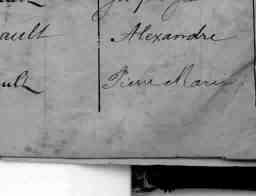 ault Alexandre
ult Pierre Marie